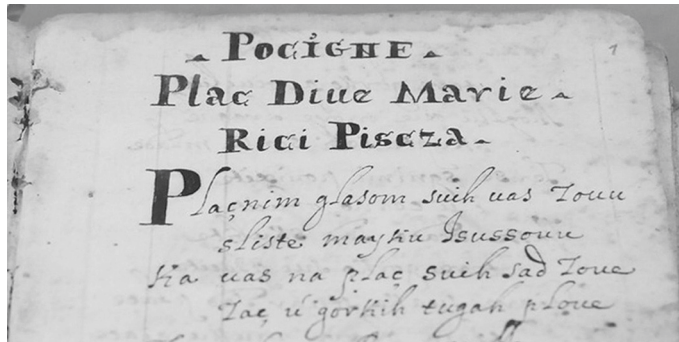 1
Pocigne
Plaç Diue Marie
Rici Piscza
Plaçnim glasom suih uas Zouu
sliste mayku Isussouu
Ka uas na plaç suih sad Zoue
Zaç u gorkih tugah ploue